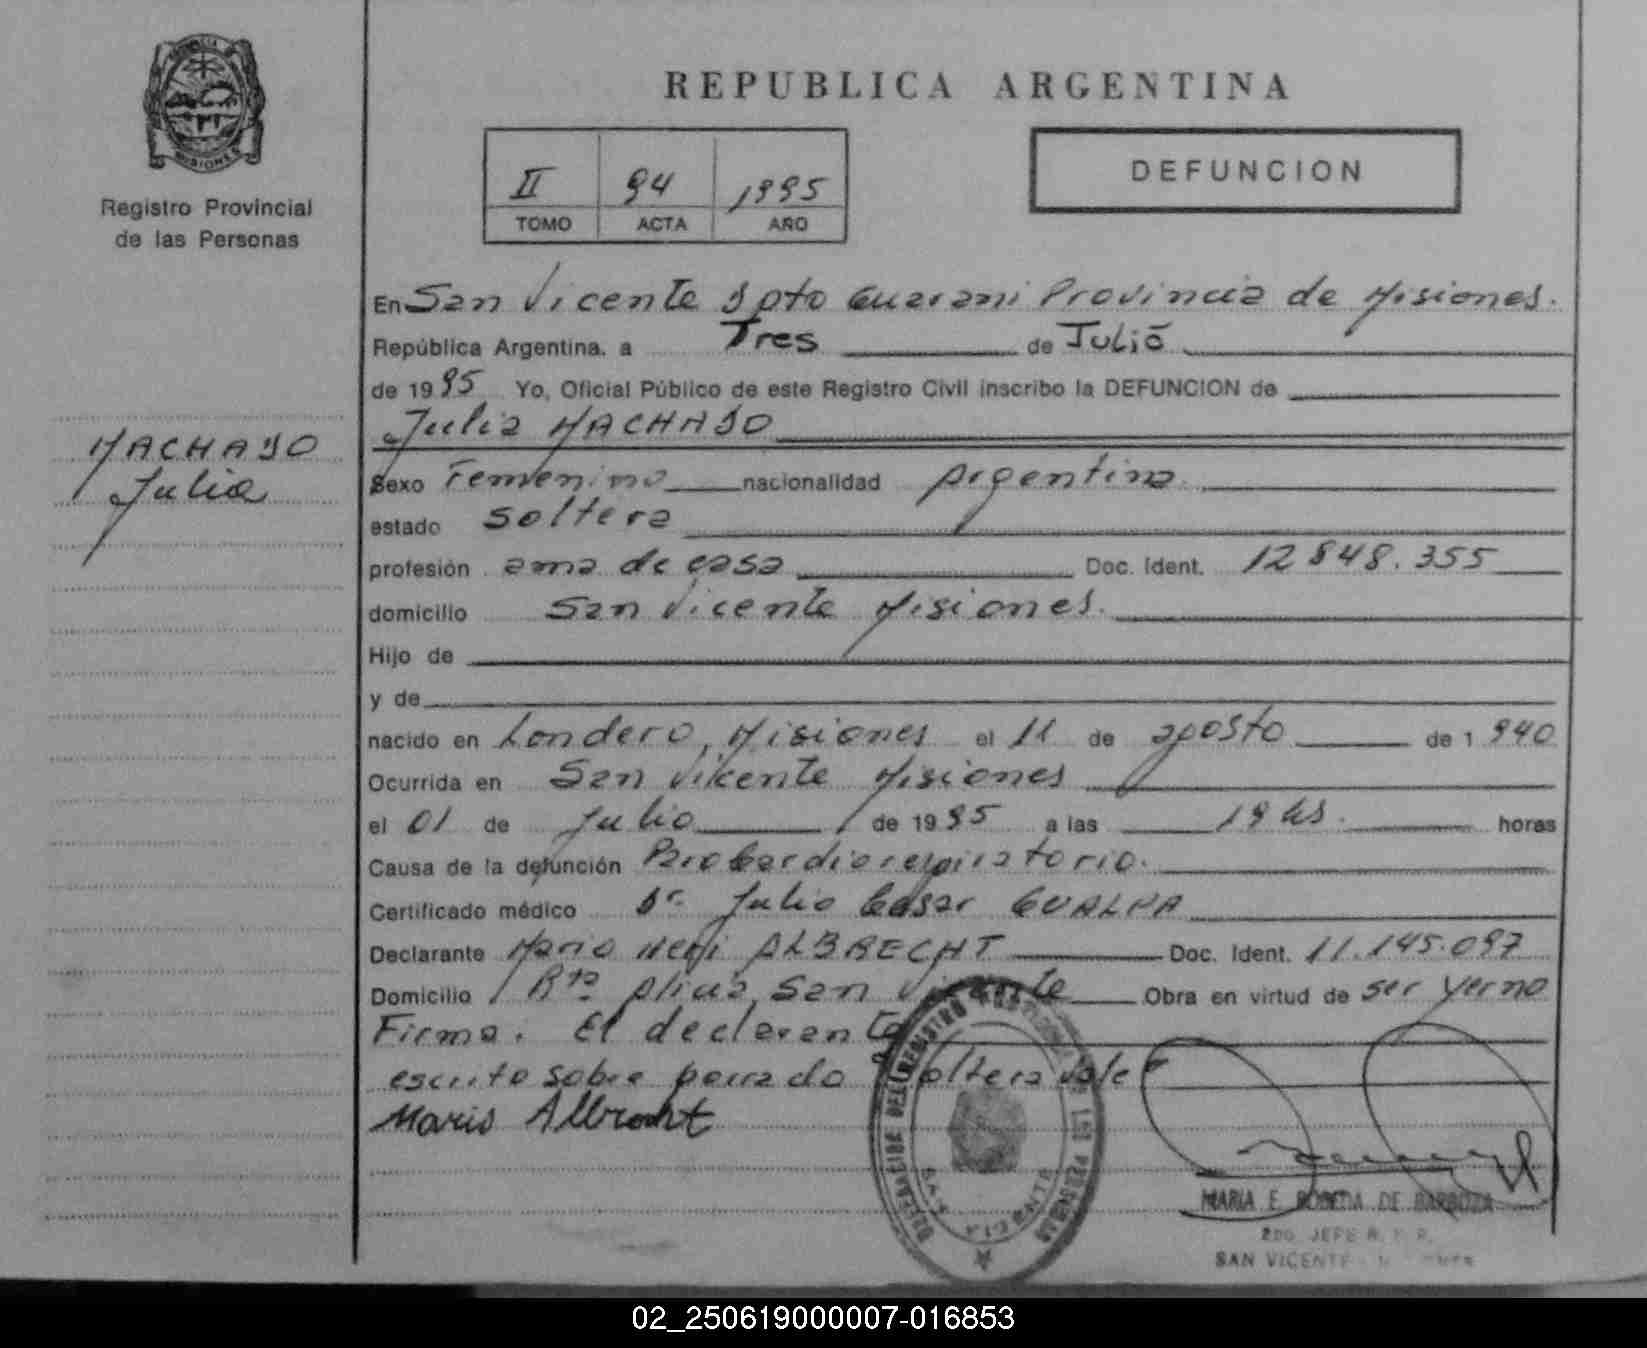 REPUBLICA ARGENTINA
MISIONES
Registro Provincial
de las Personas
II 94 1995
TOMO ACTA AÑO
DEFUNCION
MACHADO
Julia
En San Vicente Dpto Guarani Provincia de Misiones.
República Argentina, a Tres de Julio
de 1995 Yo, Oficial Público de este Registro Civil inscribo la DEFUNCION de
Julia MACHADO
Sexo Femenino nacionalidad Argentina
estado soltera
profesión ama de casa Doc. Ident. 12848.355
domicilio San Vicente Misiones.
Hijo de
y de
nacido en Londero, Misiones el 11 de agosto de 1940
Ocurrida en San Vicente Misiones
el 01 de Julio de 1995 a las 19 hs. horas
Causa de la defunción Parocardiorespiratorio.
Certificado médico Dr Julio Cesar GUALPA
Declarante Mario ALBRECHT Doc. Ident. 11.145.097
Domicilio San Vicente Obra en virtud de ser yerno
Firma. El declarante
escrito sobre borrado soltera vale
Mario Albrecht
MARIA E. DE BARBOZA
2DO JEFE R.
SAN VICENTE
02_250619000007-016853